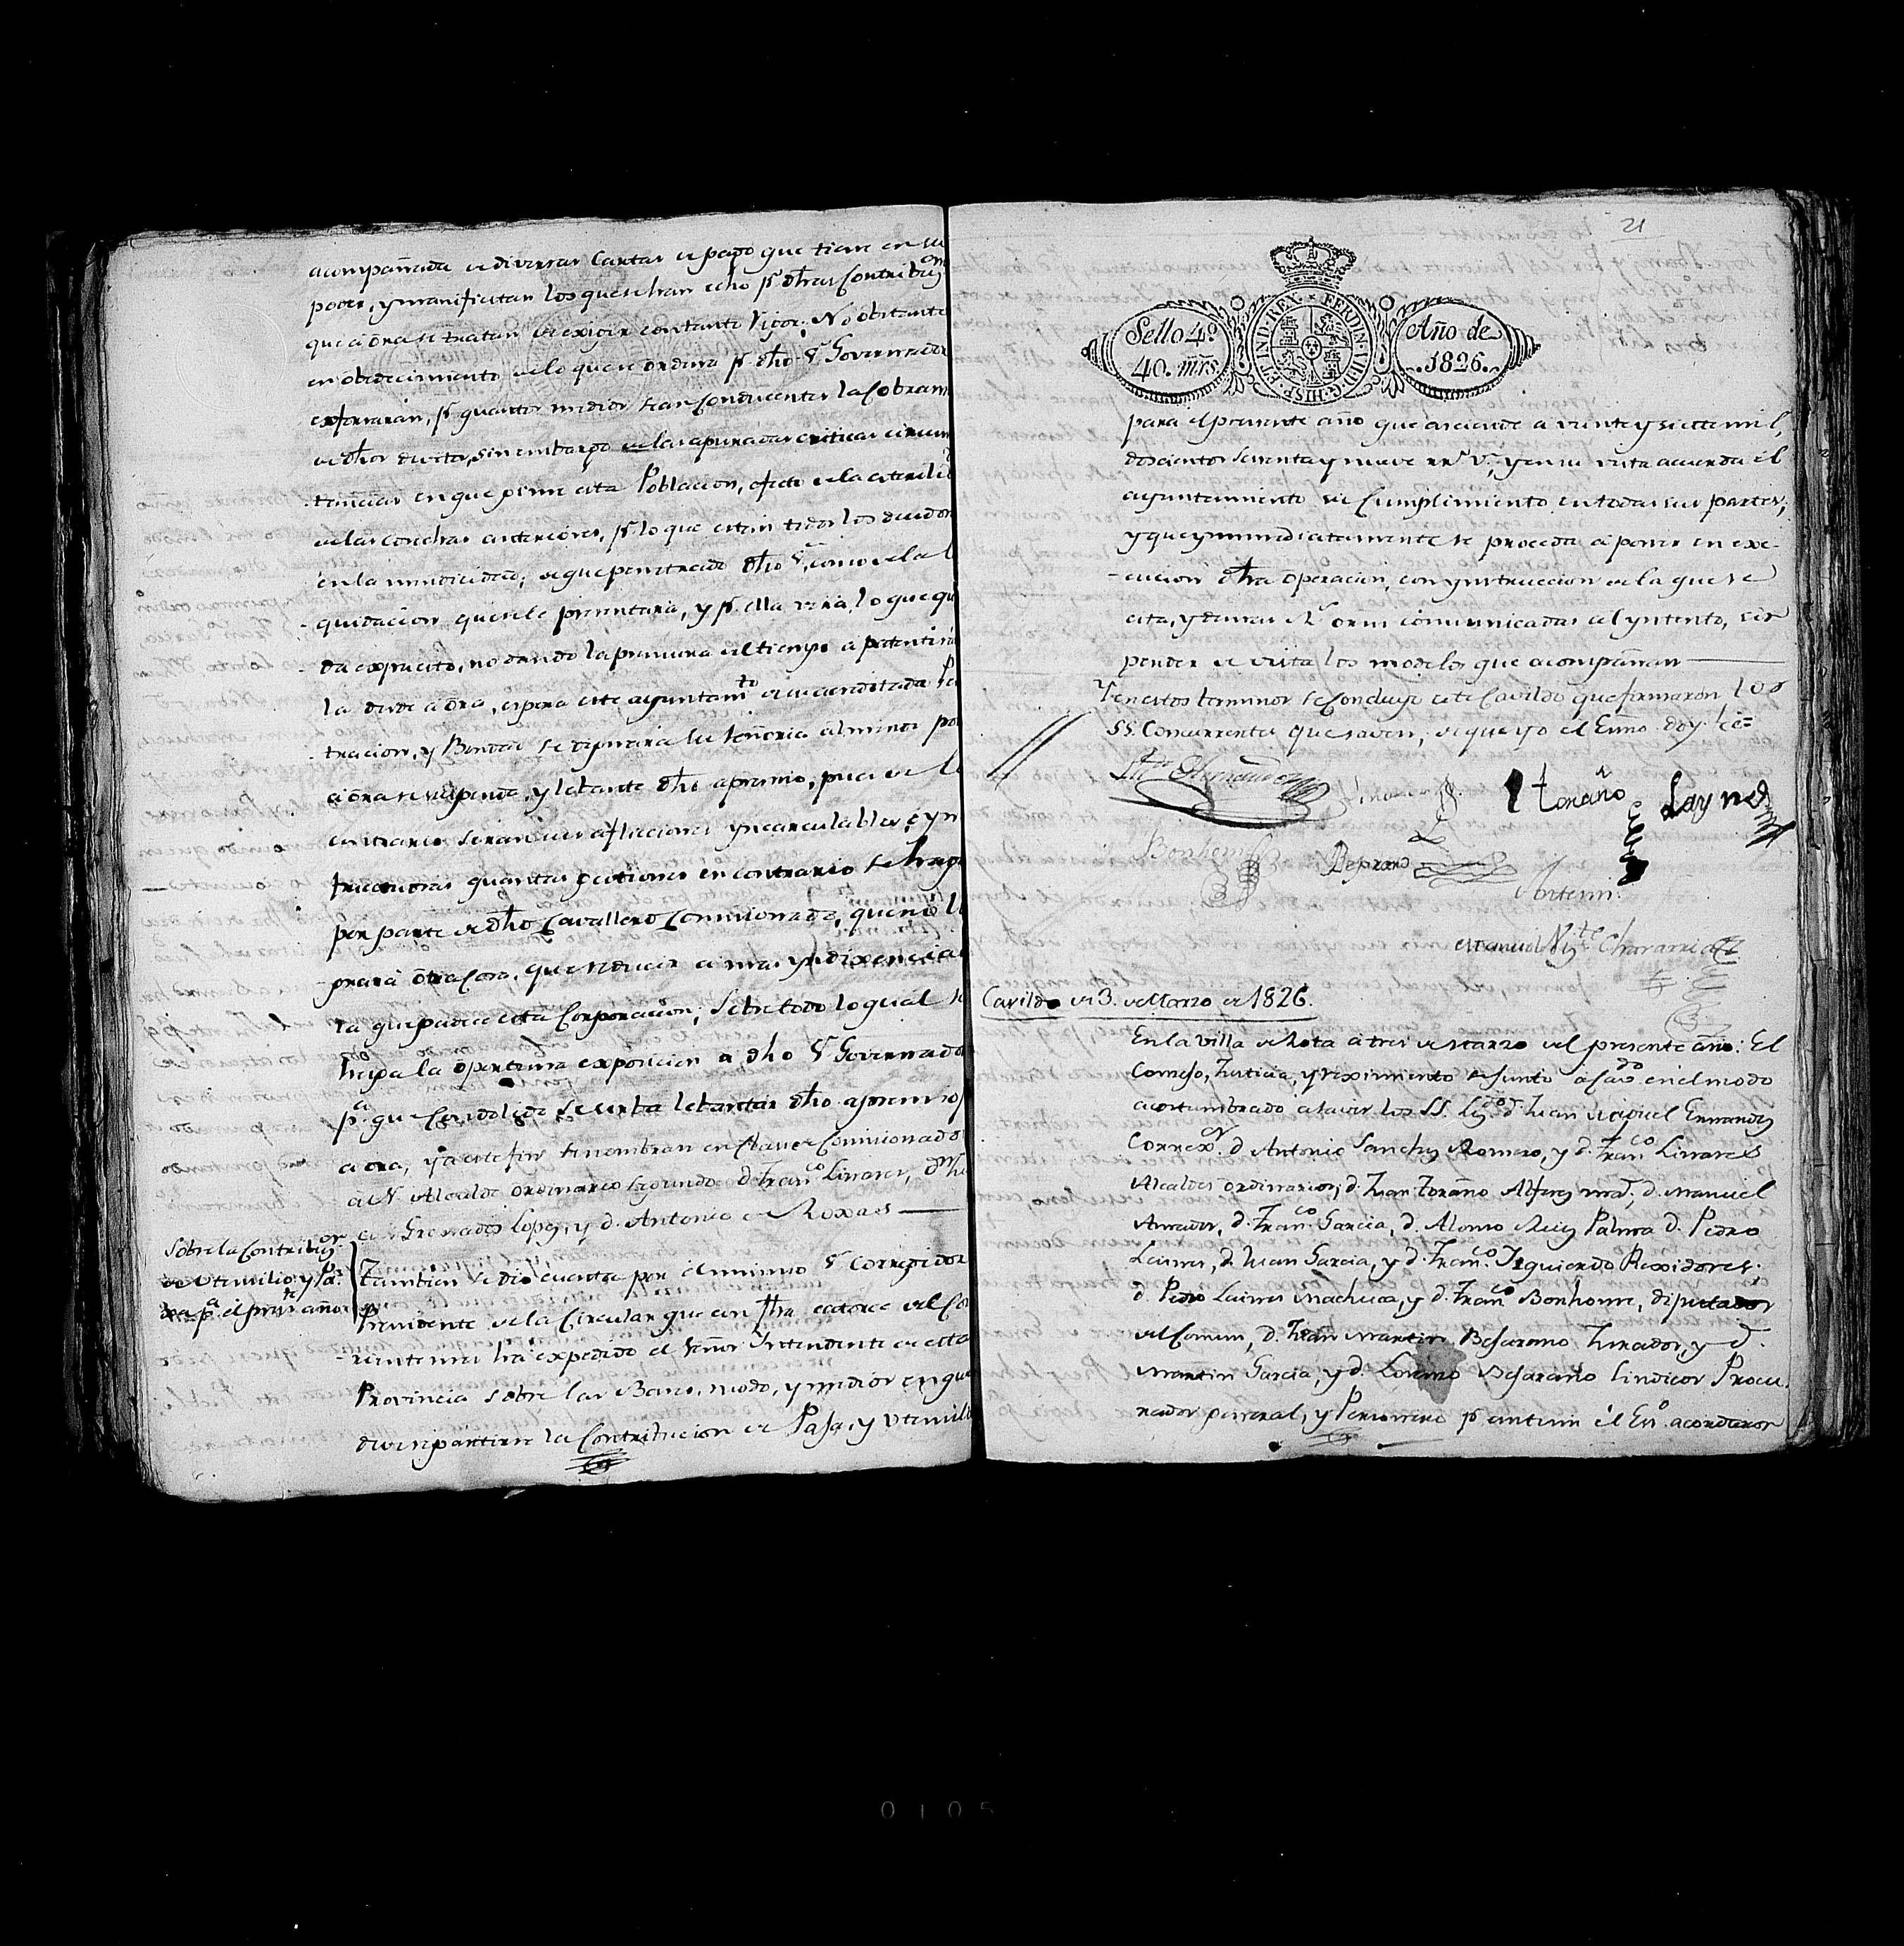 acompañada de diversas Cartas de pago que tiene en su
poder, y manifiestan los que se han echo pr. dhas Contribuon
que aôra se tratan de exigir con tanto Vigor; No obstante
en obedecimiento de lo que se ordena pr. dho Sr. Governador
esforzarán, pr. quantos medios sean Conducentes la Cobran
de dhos devitos, sin embargo de las apuradas criticas circun
tancias en que gime esta Poblacion, efecto de la esterili
de las cosechas anteriores, pr. lo que están todos los deudor
en la mendicidad; de que penetrado dho Sr. como de la li
quidacion que se le presentara, y pr. ella verá, lo que qu
da expuesto, no dando la premura del tiempo a patentizar
la desde aôra, espera este ayuntamto de su acreditada
tracion, y Bondad se dignará su Señoria al menos por
aôra se suspenda, y lebante dho apremio, pues de lo
contrario serian sus aflicciones yncalculables, é yn
fructuosas quantas gestiones en contrario se haga
por parte de dho Cavallero Comisionado, que no lo
grará ôtra cosa, que reducir a mas yndixencia
la que padece esta Corporacion; Sobre todo lo qual se
haga la oportuna exposicion a dho Sr. Governador
pa. que Condolido se sirba lebantar dho apremio
aôra, y a este fin se nombran en Clase de Comisionado
al Sr. Alcalde Ordinario segundo d. Franco Linares, dn
de Granados Lopez, y d. Antonio de Roxas
Sobre la Contribuon
de Utensilio y Pa.
xa pa. el preste año
Tambien se dio cuenta por el mismo Sr. Corregidor
Presidente de la Circular que con fha catorce del Co
rriente mes há expedido el Señor Yntendente de esta
Provincia sobre las Bases, modo, y medios en que
deve repartirse la Contribucion de Paja, y Utensilio
21
Sello 4º.
40. mrs.
HISP. ET IND. REX. FERDIN. VII. D. G.
Año de
1826.
para el presente año que asciende a veinte y siete mil,
doscientos sesenta y nueve rrs. Vn, y en su vista acuerda el
ayuntamiento su Cumplimiento en todas sus partes;
y que ynmediatamente se proceda a poner en exe-
cucion dha ôperacion, con ynstruccion de la que se
cita, y demas Rs. ôrns comunicadas al yntento, sin
perder de vista los modelos que acompañan
Y en estos terminos se Concluyó este Cavildo que firmaron los
SS. Concurrentes que saven, de que yo el Esno. doy fee=
Toraño Laynes
Bonhom
Bejarano
Antemi.
Manuel
Cavildo de 3. de Marzo de 1826.
En la villa de Rota a tres de Marzo del presente año: El
Consejo, Justicia, y reximiento se juntó a Cavdo en el modo
acostumbrado a saver los SS. Lizdo d. Juan Miguel Ernandez
Correxor. d. Antonio Sanchez Romero, y d. Franco Linares
Alcaldes ordinarios; d. Juan Toraño Alferez mor; d. Manuel
Amador, d. Franco Garcia, d. Alonso Ruiz Palma d. Pedro
Laines, d. Juan Garcia, y d. Franco Izquierdo Rexidores;
d. Pedro Laines Machuca, y d. Franco Bonhome, diputados
del Comun, d. Juan Martin Bejarano Jurado, y d.
Martin Garcia, y d. Lorenzo Bejaraño Sindicos Procu-
rador general, y Personero pr. antemi el Esno. acordaron
0105